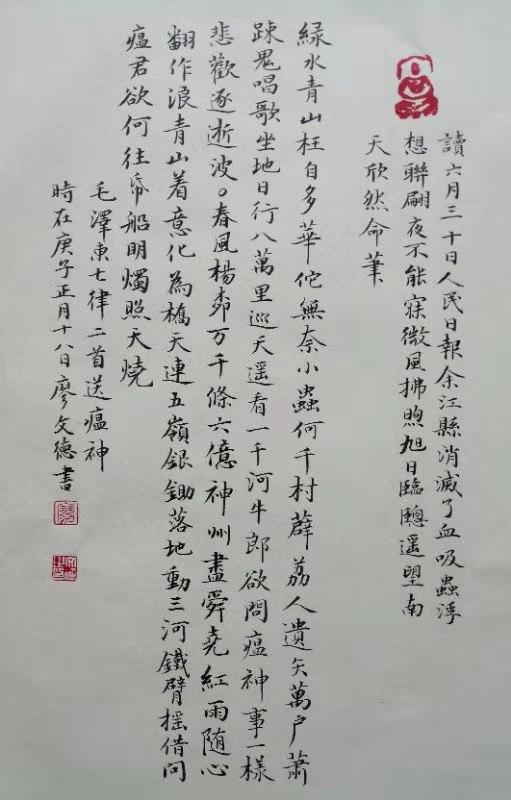 讀六月三十日人民日報余江縣消滅了血吸蟲浮
想聯翩夜不能寐微風拂煦旭日臨遥望南
天欣然命筆
緑水青山枉自多華佗無奈小蟲何千村薜荔人遺矢萬户蕭
疎鬼唱歌坐地日行八萬里巡天遥看一千河牛郎欲問瘟神事一樣
悲歡逐逝波。春風楊桺万千條六億神州盡舜堯紅雨随心
翻作浪青山着意化為橋天連五嶺銀鋤落地動三河鐵臂揺借問
瘟君欲何往帋船明燭照天燒
毛澤東七律二首送瘟神
時在庚子正月十八日廖文德書